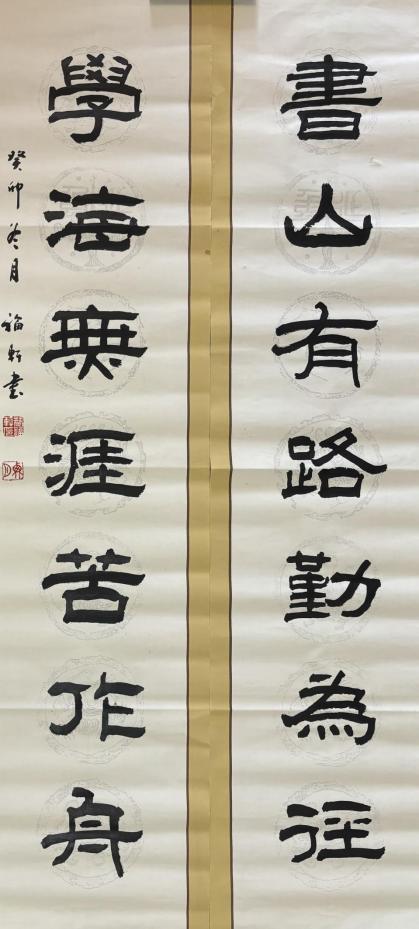 書山有路勤為徑
學海無涯苦作舟
癸卯冬月 福軒書